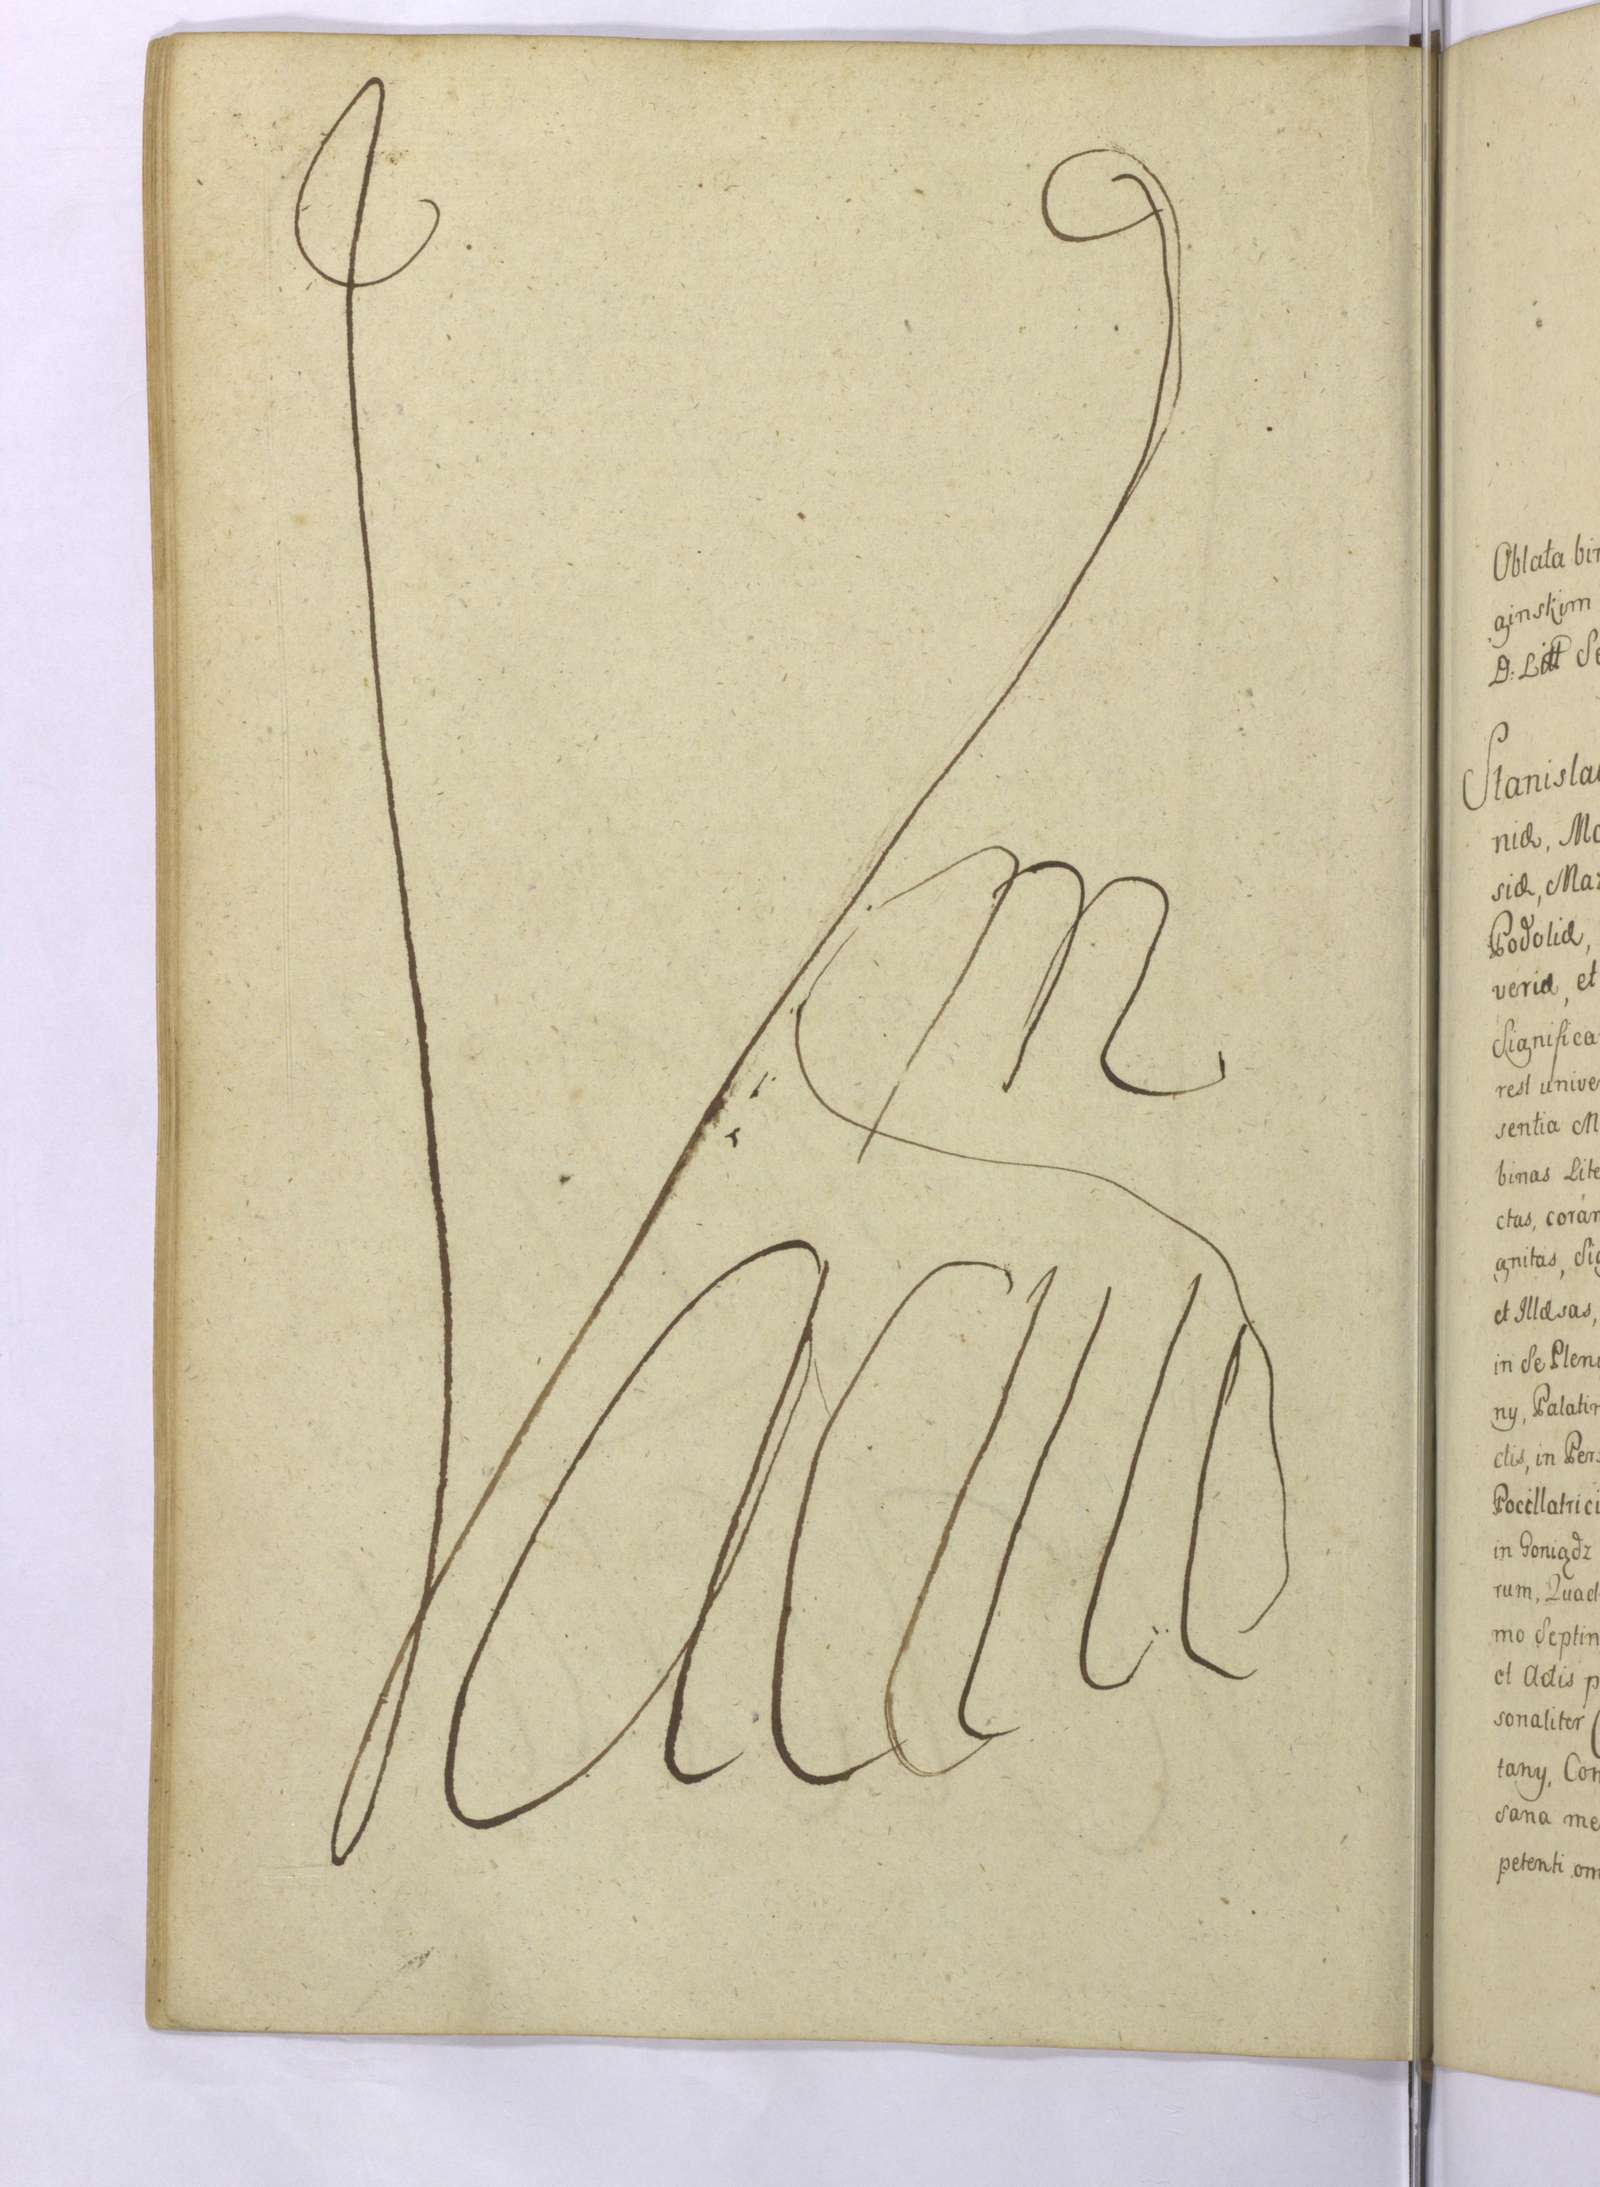 Vacuum
Oblata bin
ginskim
D: Litt Se
Stanislau
niæ, Mo
siæ, Maz
Podoliæ,
veriæ, et
Significa
rest unive
sentia M
binas Lite
ctas, corám
gnitas, Sig
et Illæsas,
in Se Plen
ny, Palatin
ctis, in Pers
Pocillatrici
in Goniądz
rum, Quad
mo Septin
et Actis p
sonaliter (
tany, Con
sana me
petenti om